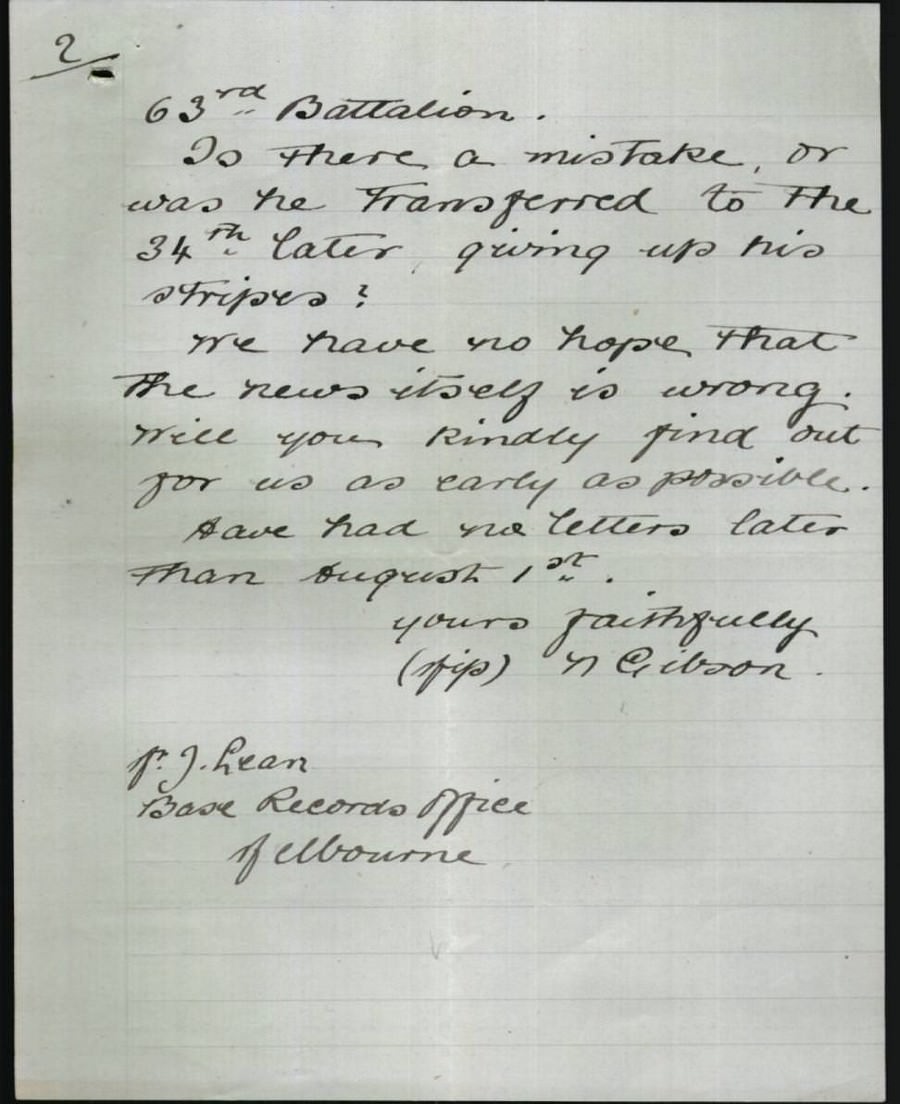 2
63rd Battalion.
Is there a mistake, or
was he transferred to the
34th later, giving up his
stripes?
We have no hope that
the news itself is wrong.
Will you kindly find out
for us as early as possible.
Have had no letters later
than August 1st.
yours faithfully
N Gibson.
J. Lean
Base Records Office
Melbourne